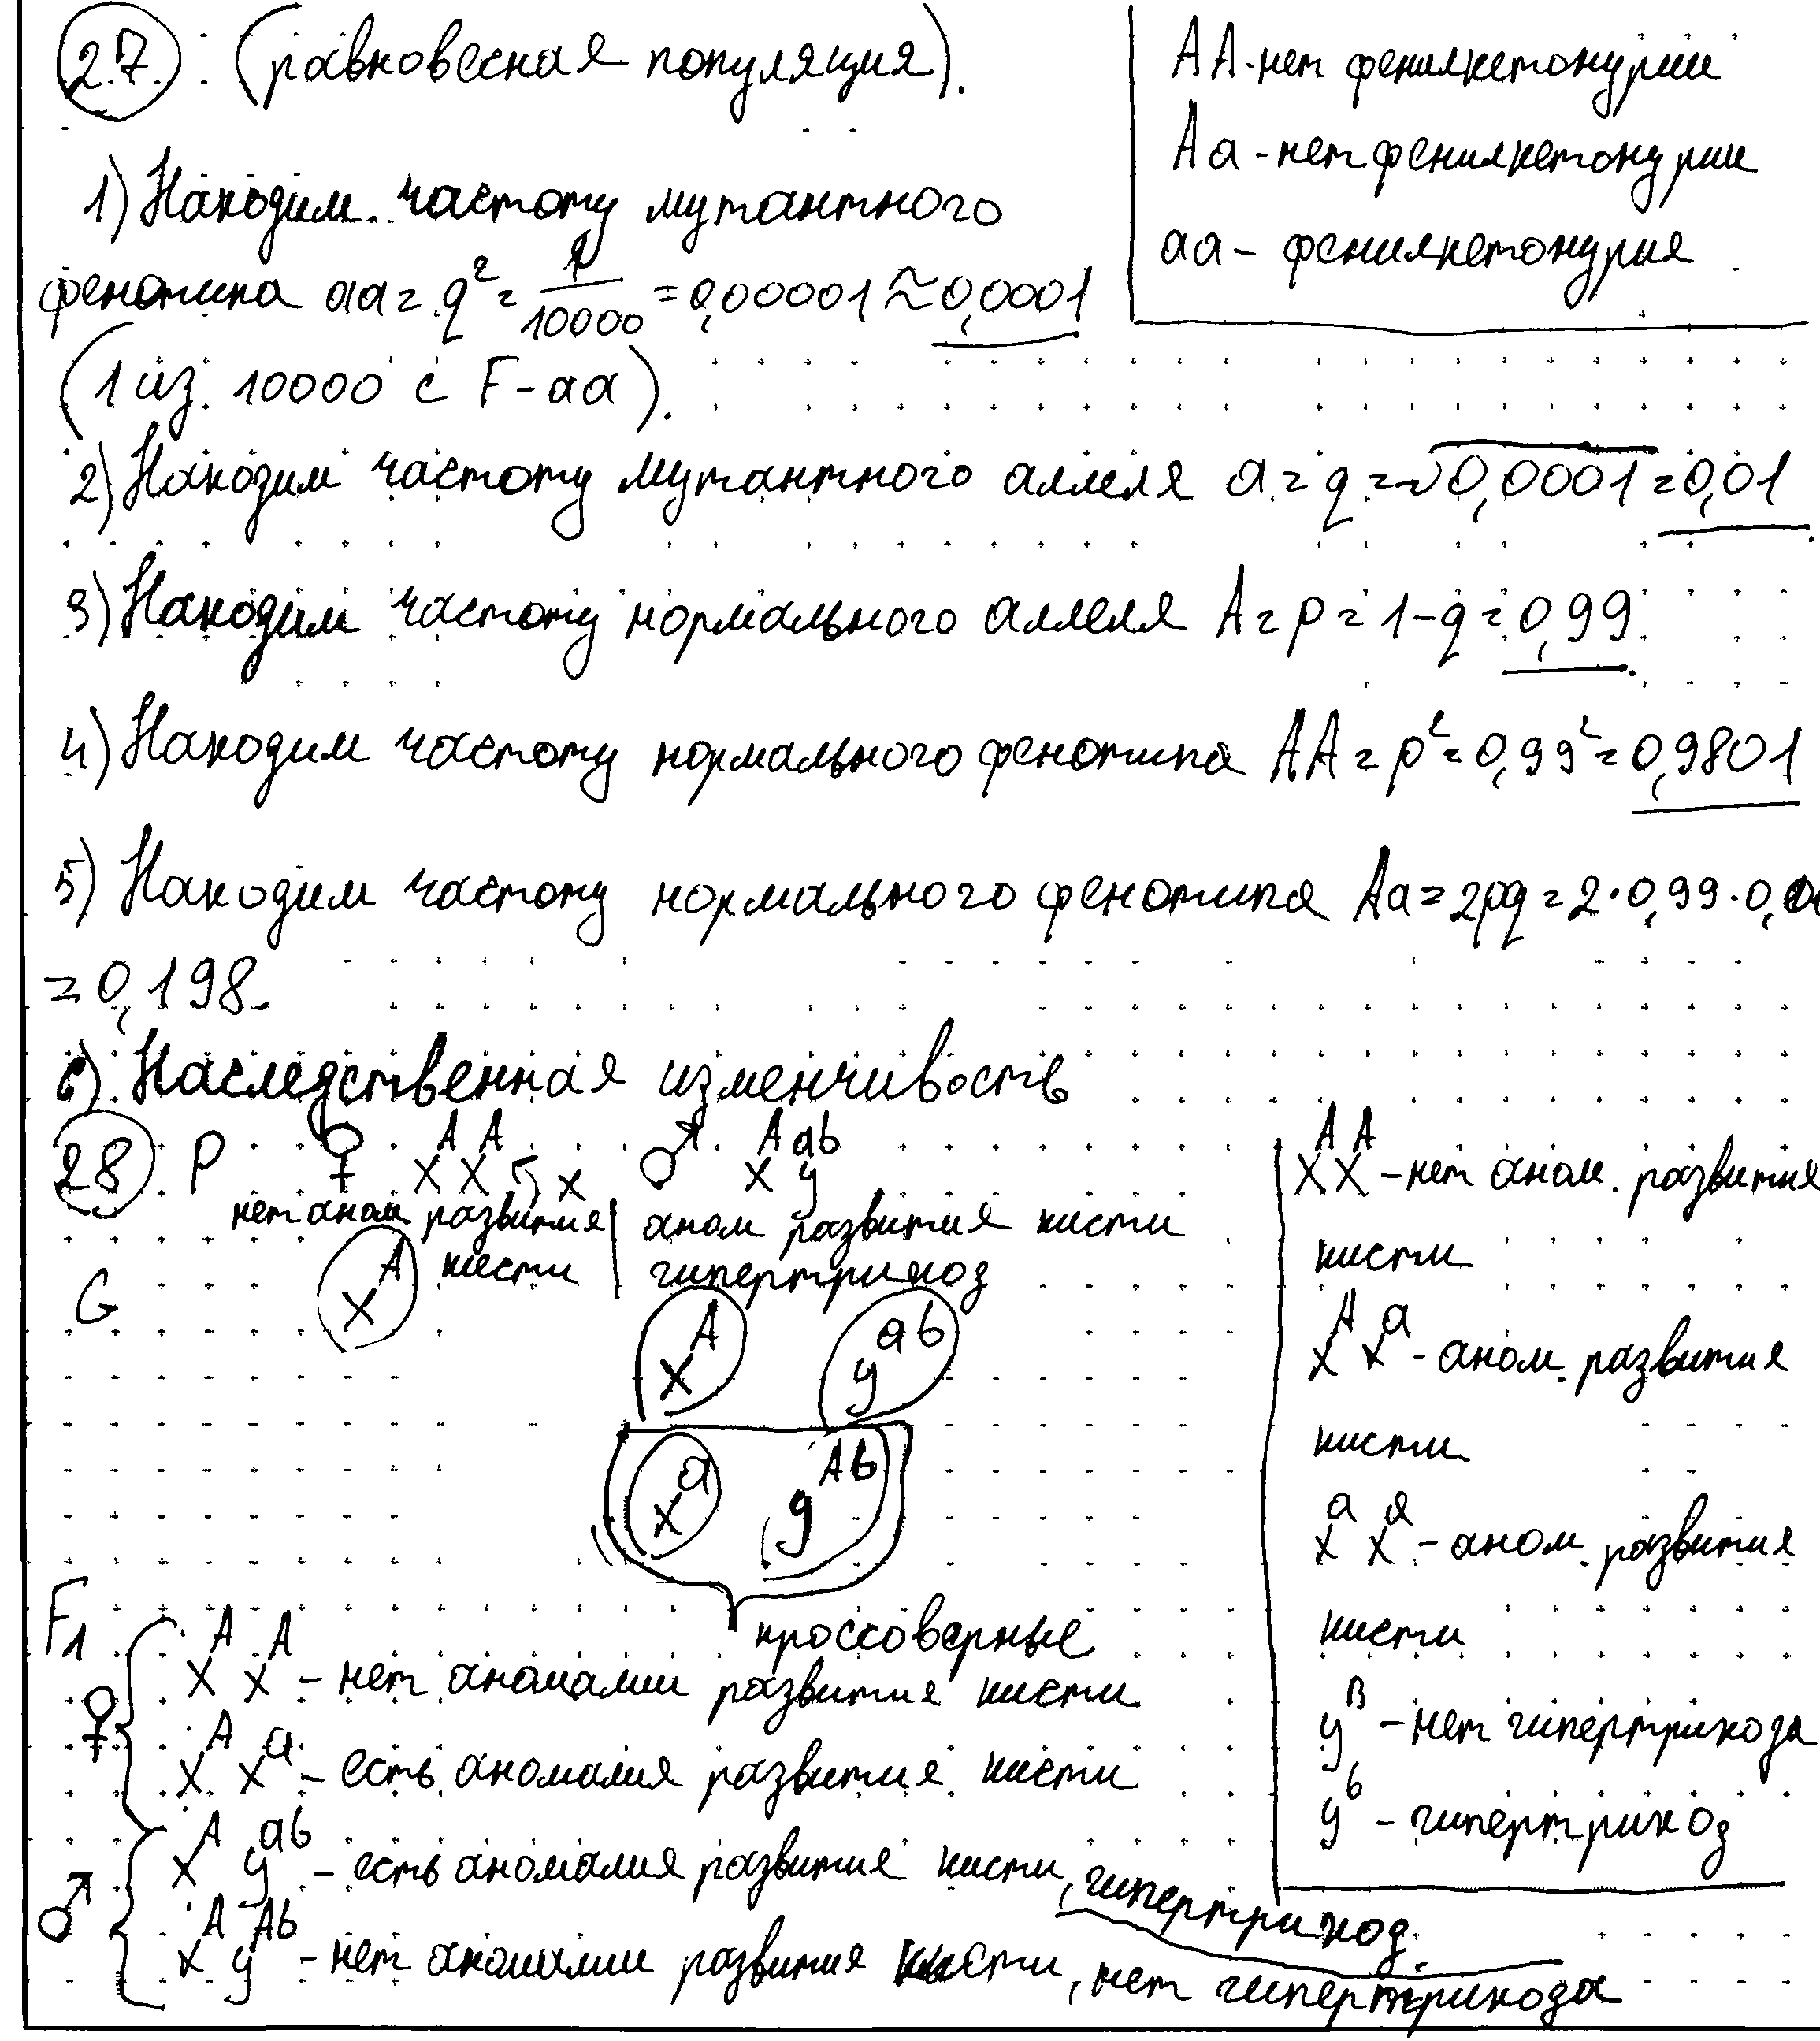 27. : (равновесная популяция).
АА-нет фенилкетонурии
Аа-нет фенилкетонурии
аа- фенилкетонурия
1) Находим частоту мутантного
фенотипа аа = q² = 1/10000 = 0,00001 ≈ 0,0001
(1 из 10000 с F-аа).
2) Находим частоту мутантного аллеля а = q = √0,0001 = 0,01
3) Находим частоту нормального аллеля А = р = 1-q = 0,99.
4) Находим частоту нормального фенотипа АА = р² = 0,99² = 0,9801
5) Находим частоту нормального фенотипа Аа = 2pq = 2·0,99·0,
= 0,198.
6). Наследственная изменчивость
28. Р ♀ XᴬXᴬ x ♂ XᴬYᵃᵇ
нет аном развития | аном развития кисти
кисти | гипертрихоз
G Xᴬ Xᴬ Yᵃᵇ
Xᵃ Yᴬᵇ
кроссоверные
XᴬXᴬ - нет аном. развития
кисти
XᴬXᵃ - аном. развития
кисти
XᵃXᵃ - аном. развития
кисти
Yᴮ - нет гипертрихоза
Yᵇ - гипертрихоз
F₁
♀ XᴬXᴬ - нет аномалии развития кисти
XᴬXᵃ - есть аномалия развития кисти
♂ XᴬYᵃᵇ - есть аномалия развития кисти, гипертрихоз.
XᴬYᴬᵇ - нет аномалии развития кисти, нет гипертрихоза